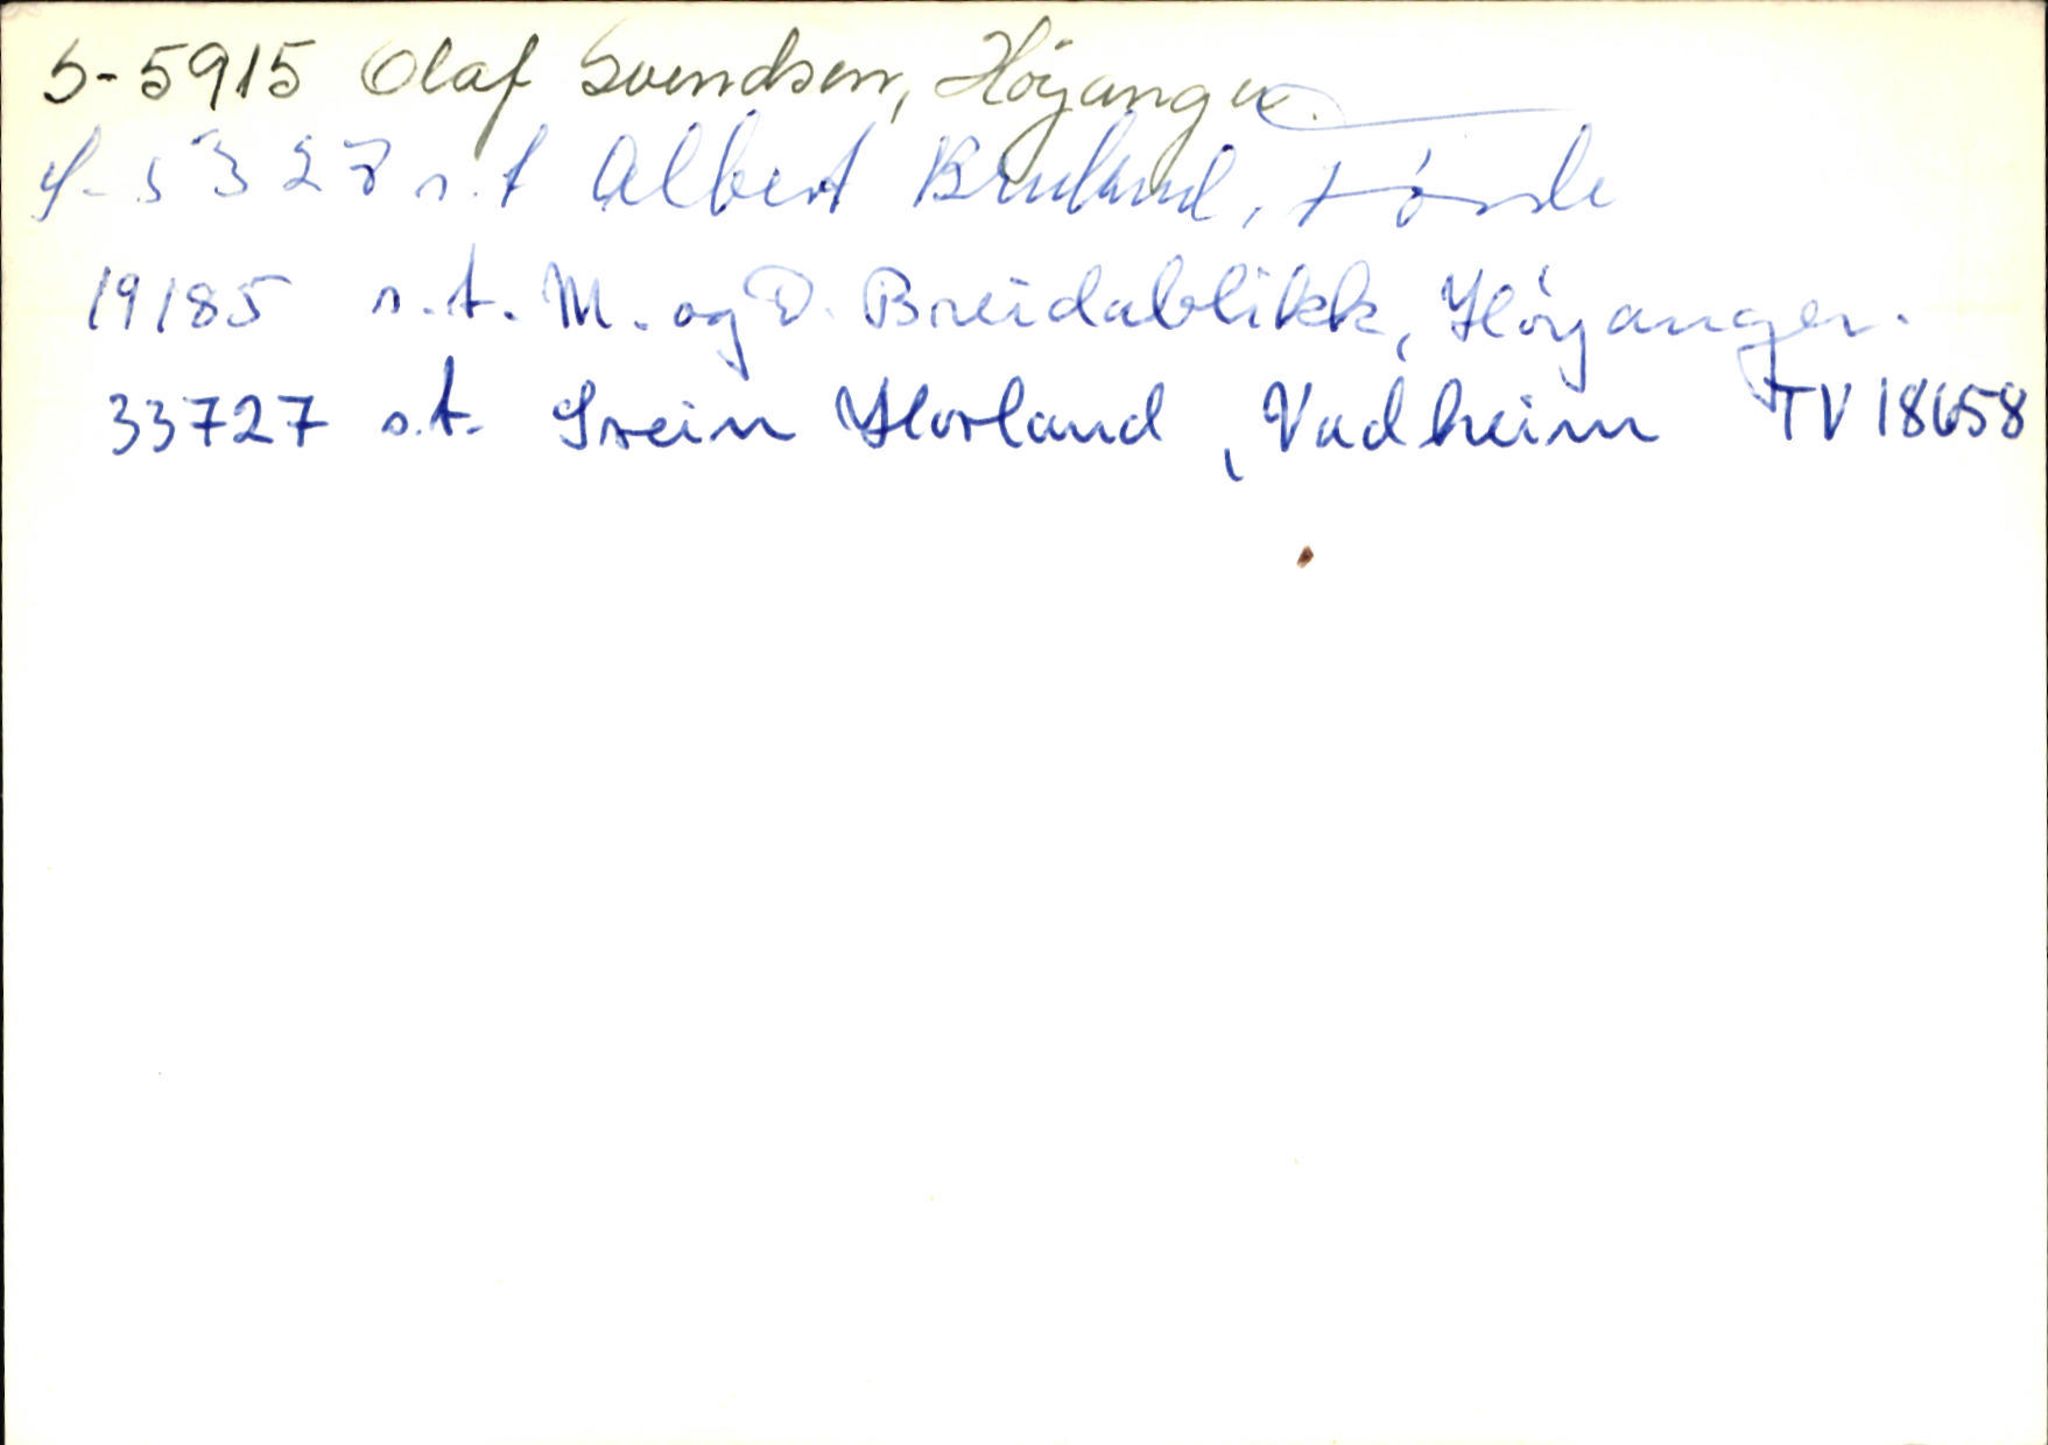 S-5915 Olaf Svendsen, Höyanger.
S-5327 s.t Albert Bruland, Førde
19185 s.t. M. og D. Breidablikk, Høyanger.
33727 s.t. Svein Horland, Vadheim TV 18658